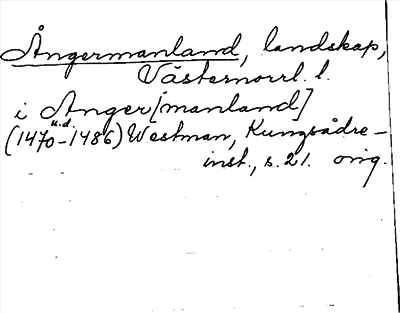 Ångermanland, landskap,
Västernorrl. l.
i Anger[manland]
u.d.
(1470-1486) Westman, Kungsådre-
inst., s. 21. orig.